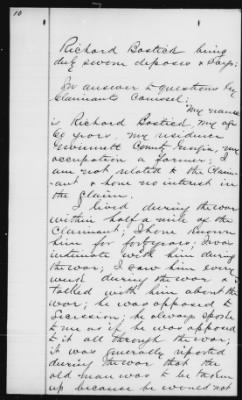 10
Richard Bostick being
duly sworn deposes & says:
In answer to questions by
Claimants Counsel:
My name
is Richard Bostick, my age
60 years, my residence
Gwinnett County Georgia, my
occupation a farmer; I
am not related to the Claim-
-ant & have no interest in
the Claim.
I lived during the war
within half a mile of the
Claimant; I have known
him for forty years; I was
intimate with him during
the war; I saw him every
week during the war &
talked with him about the
war; he was opposed to
Secession; he always spoke
to me as if he was opposed
to it all through the war;
it was generally reported
during the war that the
old man was to be taken
up because he would not